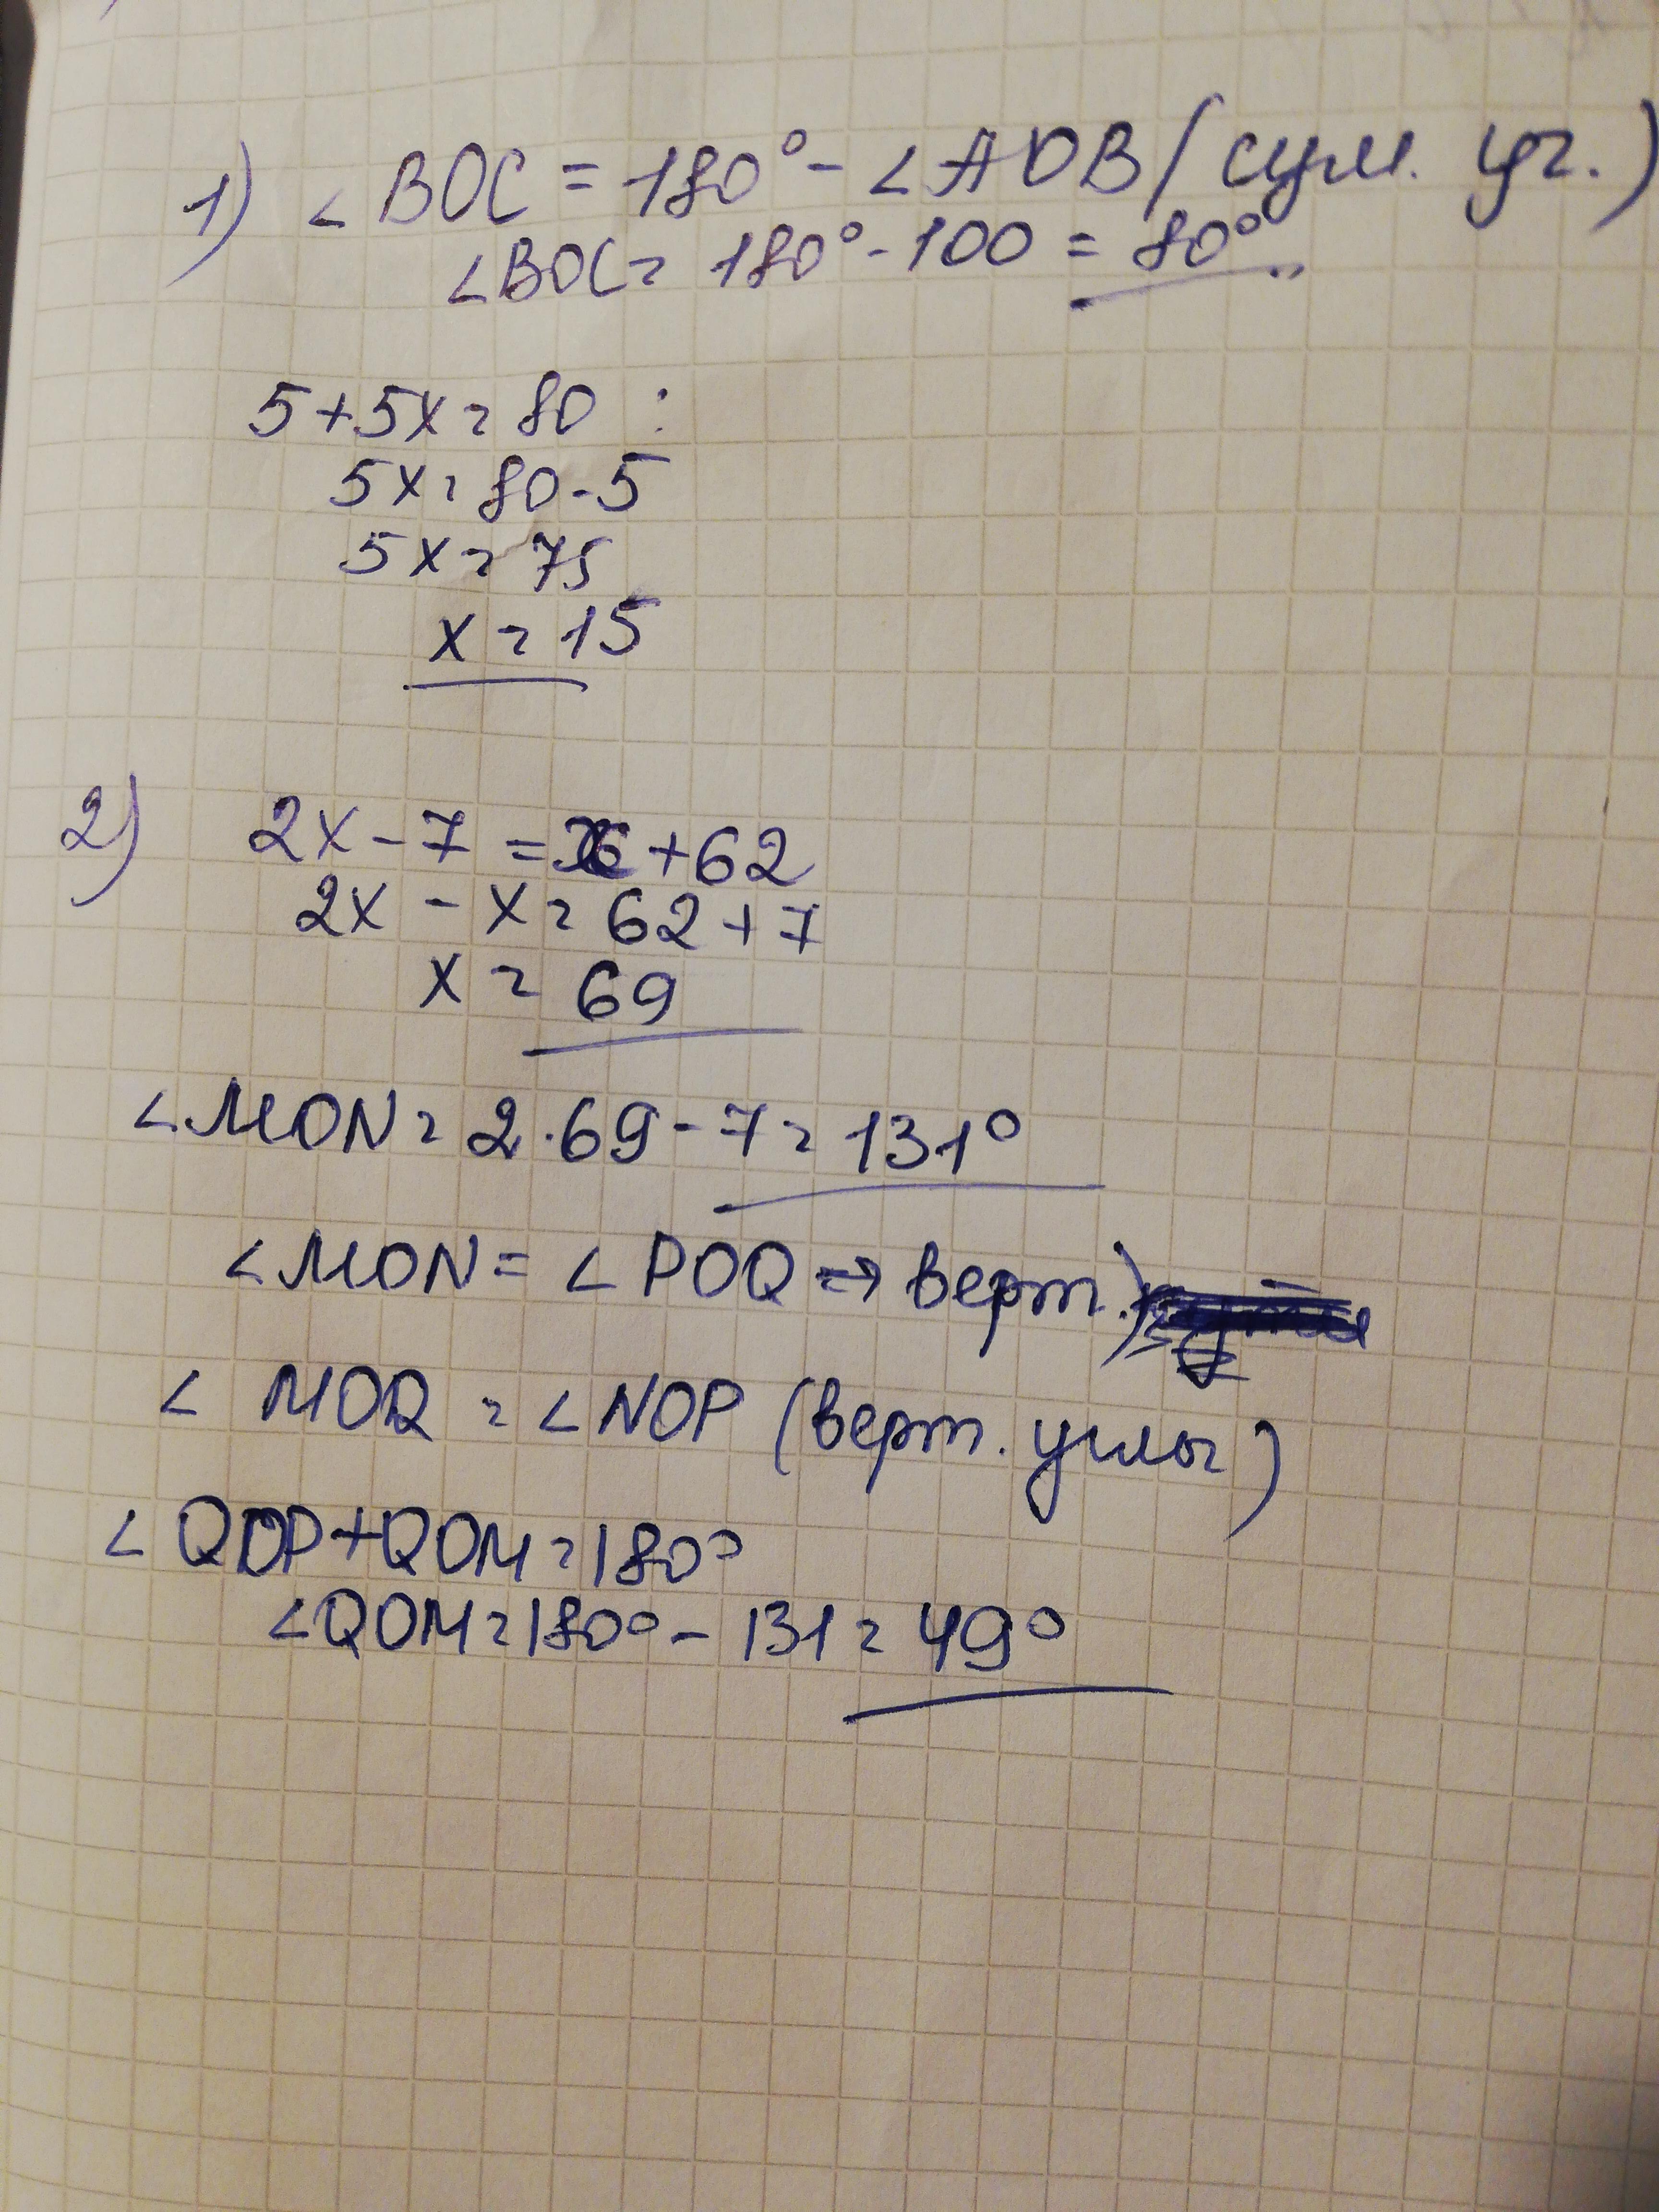 1) ∠BOC = 180° - ∠AOB (сум. уг.)
∠BOC = 180° - 100 = 80°
5 + 5x = 80 :
5x = 80 - 5
5x = 75
x = 15
2) 2x - 7 = x + 62
2x - x = 62 + 7
x = 69
∠MON = 2 · 69 - 7 = 131°
∠MON = ∠POQ ⇒ верт.)
∠MOQ = ∠NOP (верт. углы)
∠QOP + QOM = 180°
∠QOM = 180° - 131 = 49°